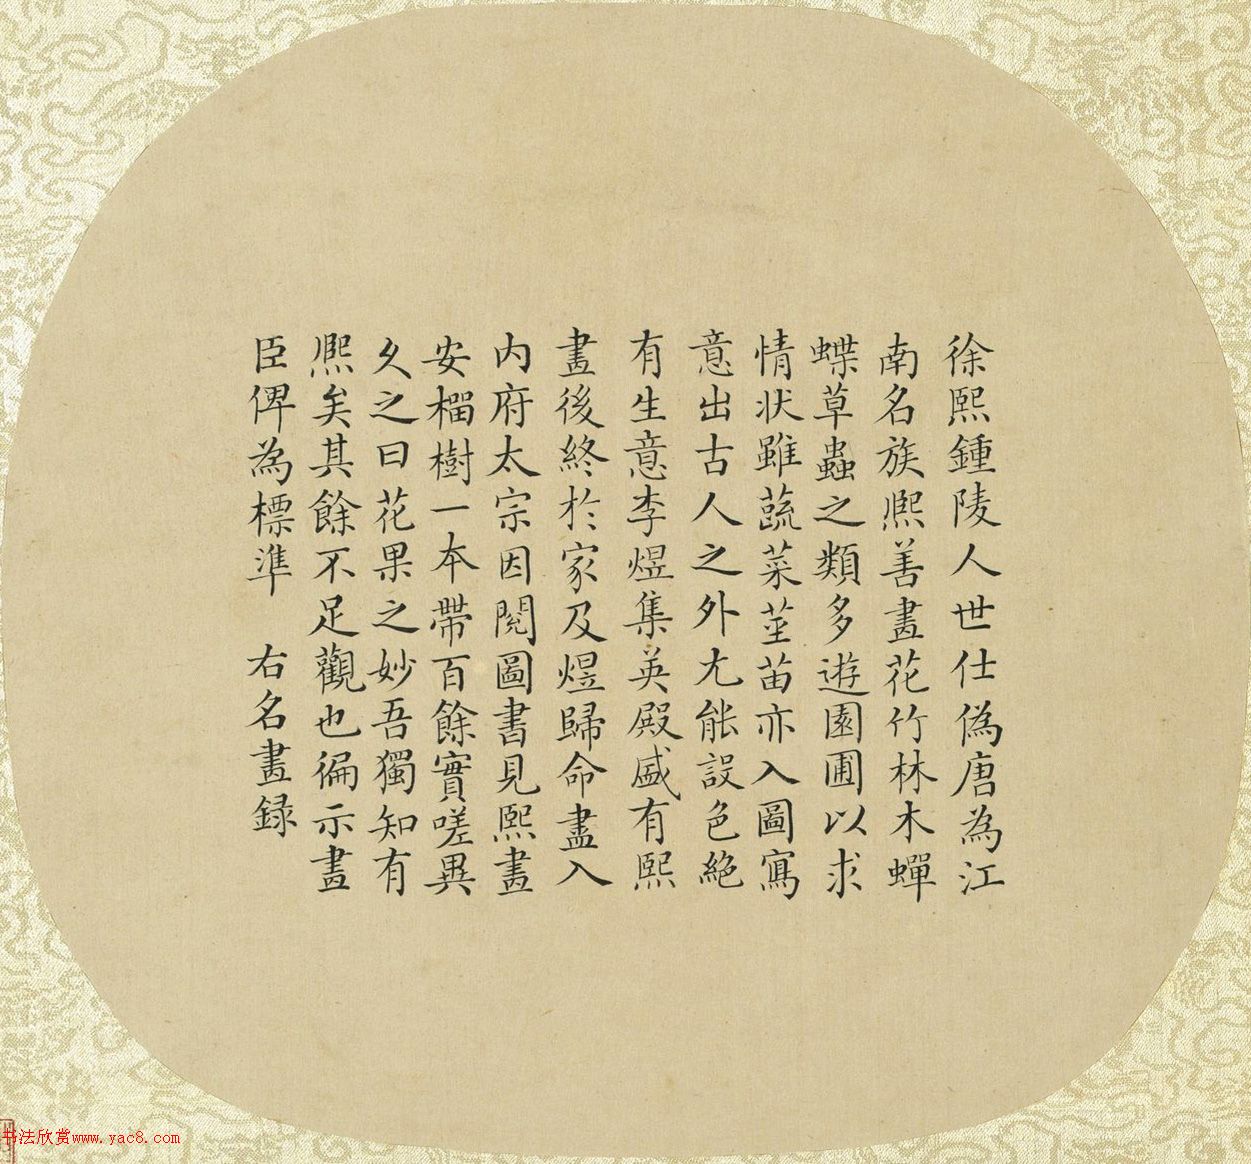 徐熙鍾陵人世仕偽唐為江
南名族熙善畫花竹林木蟬
蝶草蟲之類多遊園圃以求
情状雖蔬菜莖苗亦入圖寫
意出古人之外尤能設色絕
有生意李煜集英殿盛有熙
畫後終於家及煜歸命盡入
内府太宗因閱圖書見熙畫
安榴樹一本帶百餘實嗟異
久之曰花果之妙吾獨知有
熙矣其餘不足觀也徧示畫
臣俾為標準 右名畫録
书法欣赏www.yac8.com